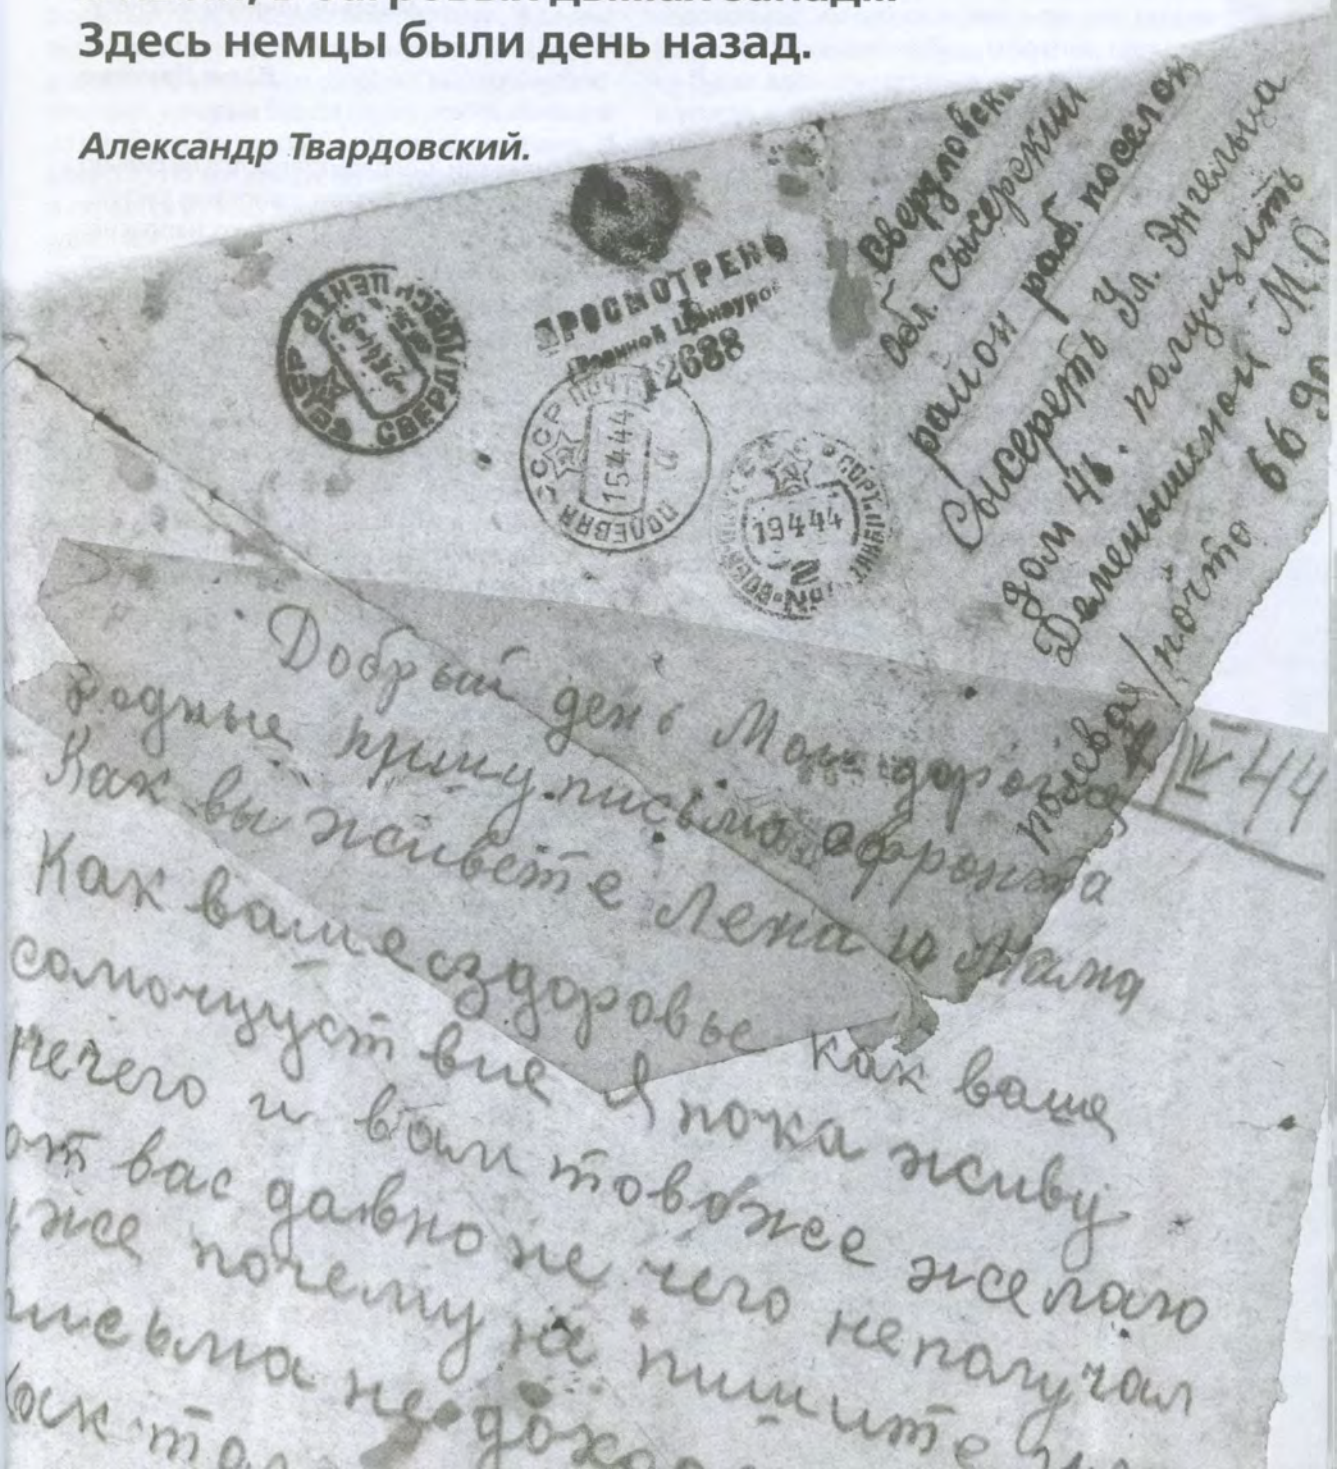 Здесь немцы были день назад.
Александр Твардовский.
ПРОСМОТРЕНО
Военной Цензурой
12688
СССР
СВЕРДЛОВСК
ПОЛЕВАЯ
15 4 44
19 4 44
Свердловская
обл. Сысерский
район раб. поселок
Сысереть Ул. Энгельса
дом 46. получить
Деменьшиной М.С
полевая почта 66 90
44
Добрый день Мои дорогие
родные пишу письмо сфронта
Как вы живете Лена и Мама
Как ваше здоровье как ваше
самочуцствие Я пока живу
нечего и вам товоже желаю
от вас давно не чего неполучал
же почему не пишите
письма не
как